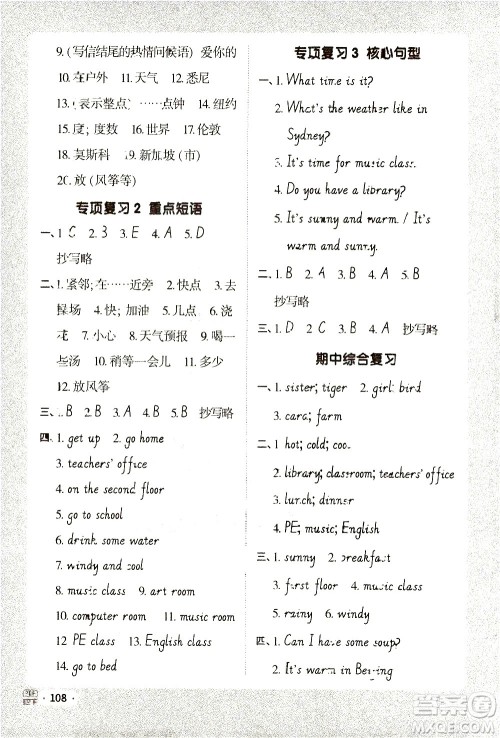 9.(写信结尾的热情问候语) 爱你的
10.在户外 11.天气 12.悉尼
13.(表示整点)……点钟 14.纽约
15.度; 度数 16.世界 17.伦敦
18.莫斯科 19.新加坡(市)
20.放(风筝等)
专项复习2 重点短语
一、1.C 2.B 3.E 4.A 5.D
抄写略
二、1.紧邻;在……近旁 2.快点 3.去
操场 4.快;加油 5.几点 6.浇
花 7.小心 8.天气预报 9.喝一
些汤 10.稍等一会儿 11.多少
12.放风筝
三、1.B 2.A 3.B 4.B 5.B 抄写略
四、1. get up 2. go home
3. teachers' office
4. on the second floor
5. go to school
6. drink some water
7. windy and sunny
8. music class 9. art room
10. computer room
12. PE class 13. English class
14. go to bed
专项复习3 核心句型
一、1. What time is it?
2. What's the weather like in
Sydney?
3. It's time for music class.
4. Do you have a library?
5. It's sunny and warm / It's
warm and sunny in
二、1.B 2.A 3.B 4.A 5.B
抄写略
三、1.D 2.C 3.B 4.A 抄写略
期中综合复习
一、1. sister; tiger 2. girl; bird
3. card; farm
二、1. hot; cold; cool; warm
2. library; classroom; teachers' office
3. lunch; dinner
4. PE; music; English
三、1. sunny 2. breakfast
3. first floor 4. cloudy
5. rainy 6. windy
四、1. Can I have some
2. It's warm in Beijing
108
答案圈
MXQE.COM